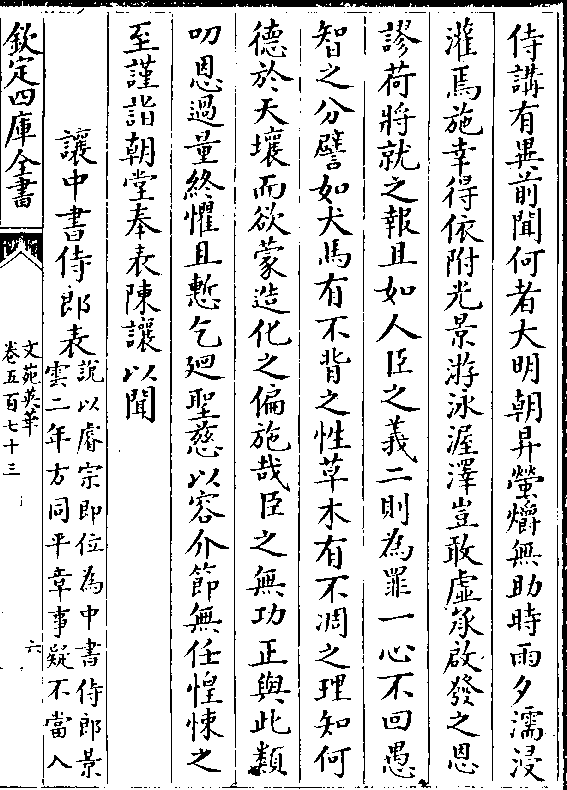 侍講有異前聞何者大明朝昇螢爝無助時雨夕濡浸
灌焉施幸得依附光景游泳渥澤豈敢虛承啟發之恩
謬荷將就之報且如人臣之義二則為罪一心不回愚
智之分譬如犬馬有不背之性草木有不凋之理知何
德於天壤而欲蒙造化之偏施哉臣之無功正與此類
叨恩過量終懼且慙乞廻聖慈以容介節無任惶悚之
至謹詣朝堂奉表陳讓以聞
讓中書侍郎表
說以睿宗即位為中書侍郎景
雲二年方同平章事疑不當入
欽定四庫全書
文苑英華
卷五百七十三
六